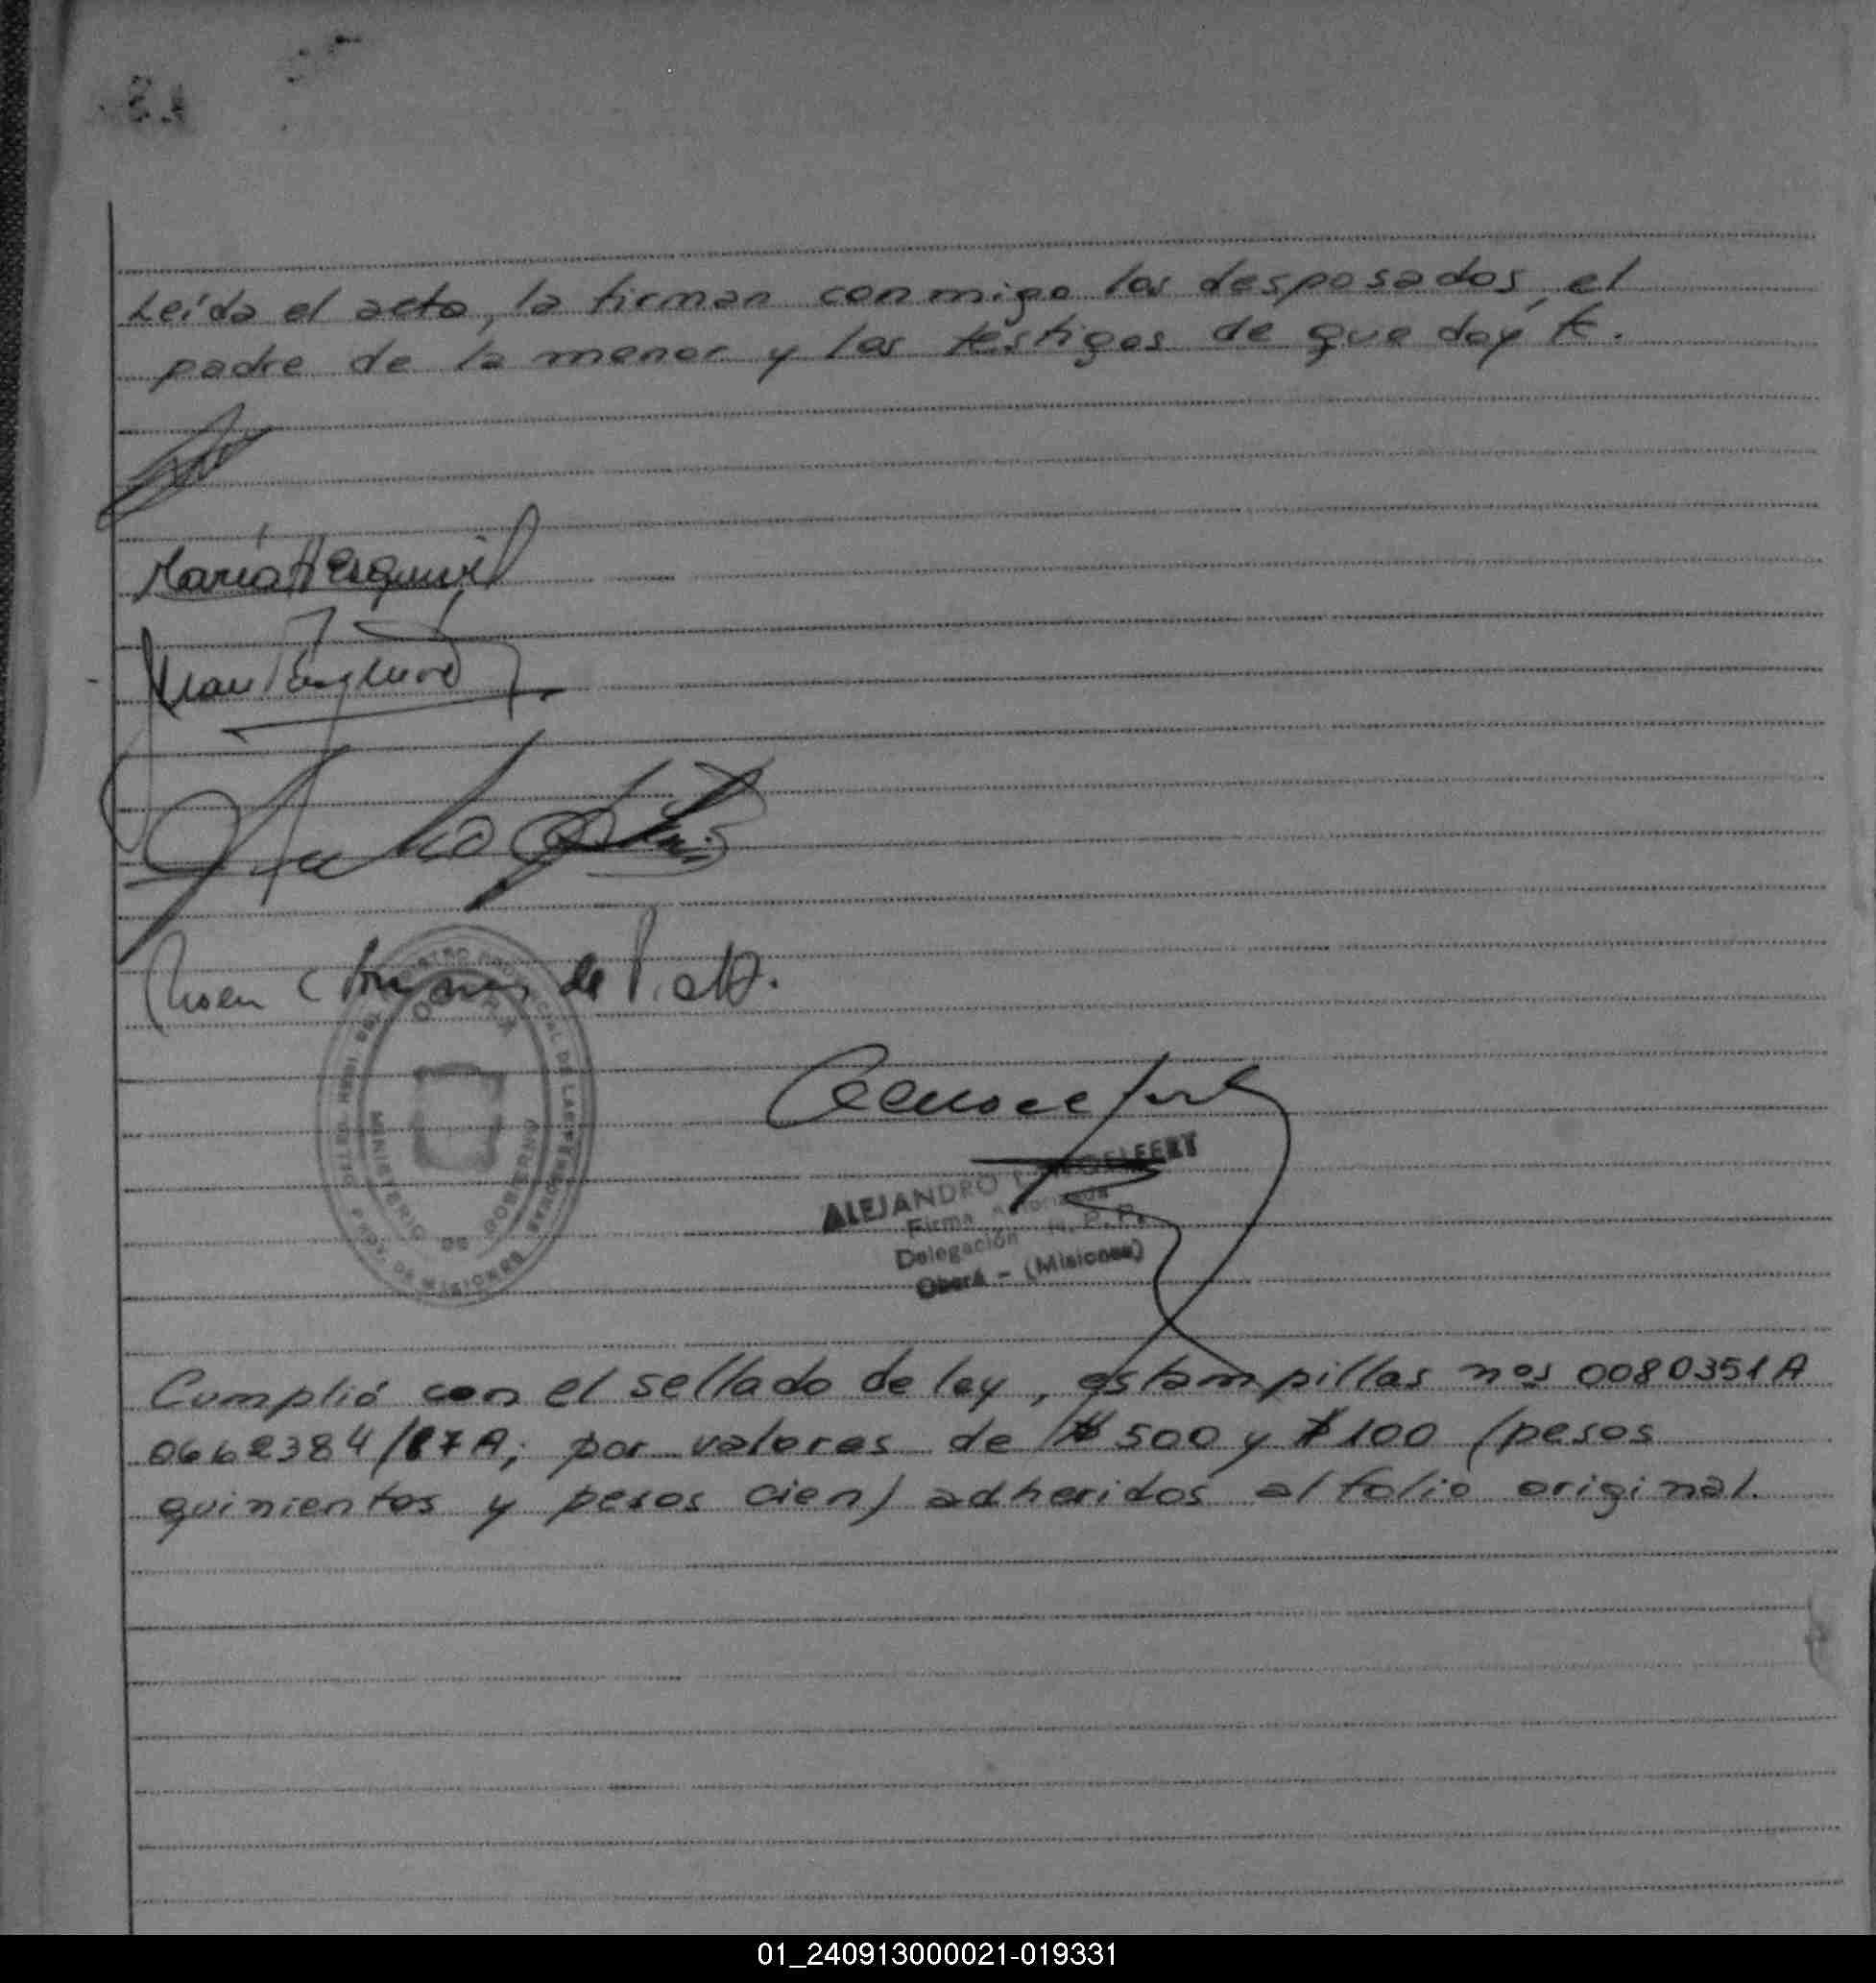 Leída el acta, la firman conmigo los desposados, el
padre de la menor y los testigos de que doy fé.
María H Esquivel
de
ALEJANDRO
Firma Autorizada
Delegación R.P.P.
Oberá - (Misiones)
REGISTRO PROVINCIAL DE LAS PERSONAS
OBERA
MINISTERIO DE GOBIERNO
PROV. DE MISIONES
Cumplió con el sellado de ley, estampillas nos 0080351A
0662384/87A; por valores de $500 y $100 (pesos
quinientos y pesos cien) adheridos al folio original.
01_240913000021-019331